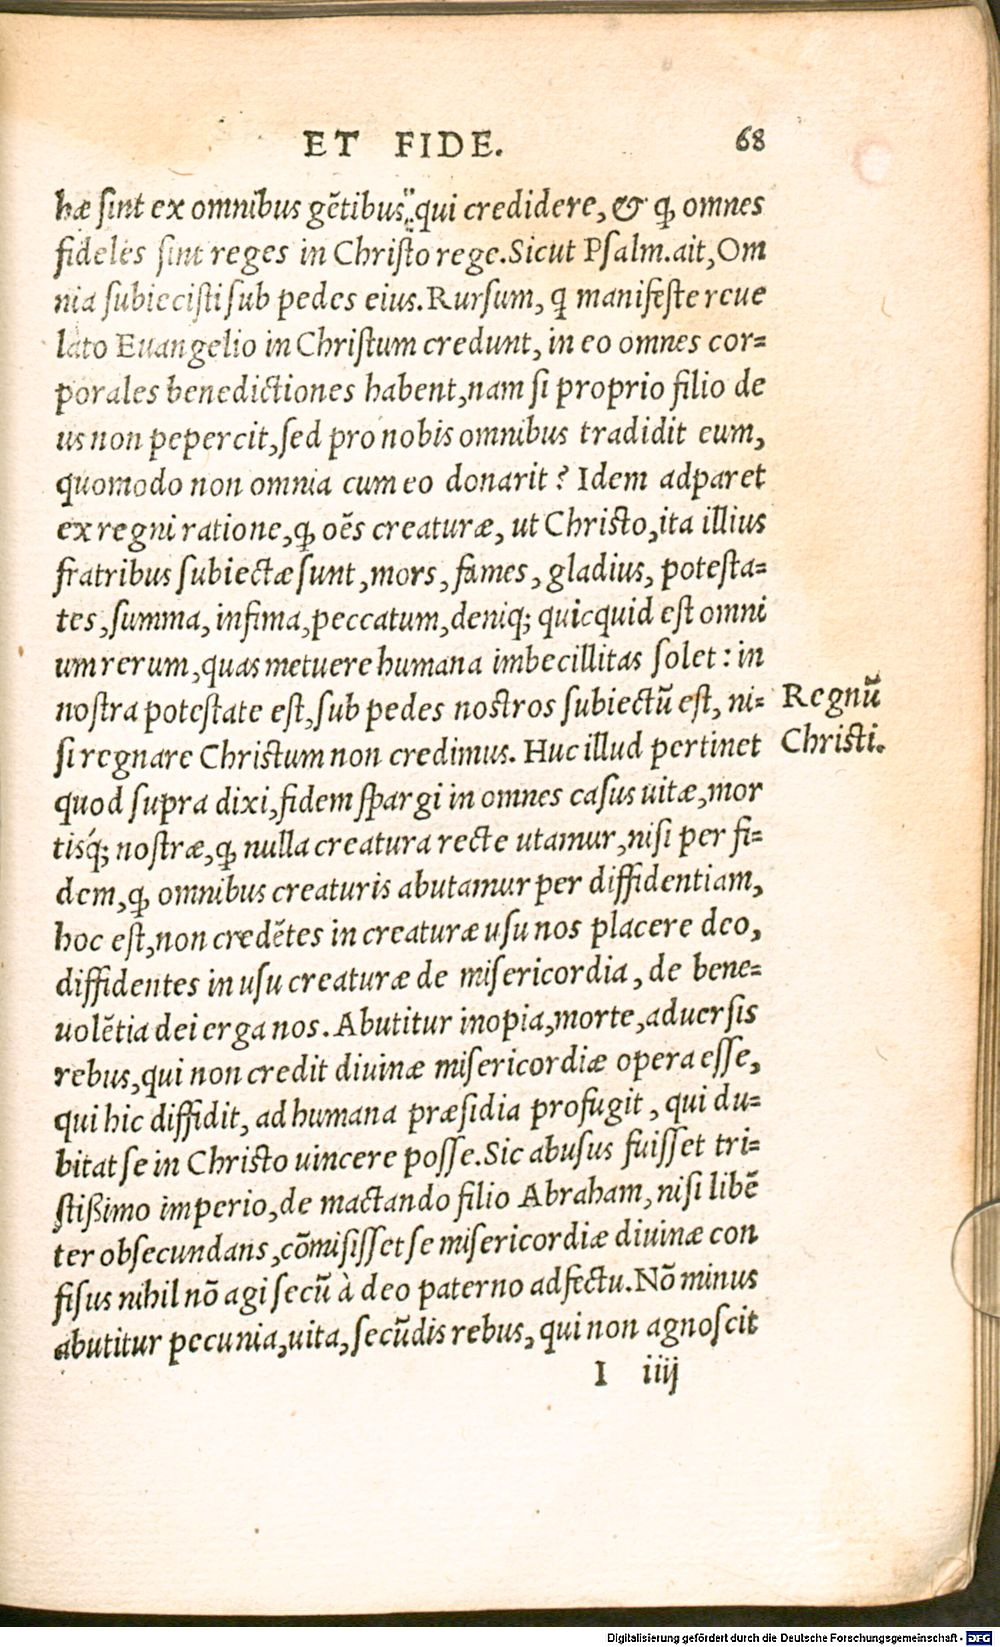 ET FIDE. 68
hæ ſint ex omnibus gẽtibus, qui credidere, & ꝙ omnes
fideles ſint reges in Chriſto rege. Sicut Pſalm. ait, Om
nia ſubieciſti ſub pedes eius. Rurſum, ꝗ manifeſte reue
lato Euangelio in Chriſtum credunt, in eo omnes cor=
porales benedictiones habent, nam ſi proprio filio de
us non pepercit, ſed pro nobis omnibus tradidit eum,
quomodo non omnia cum eo donarit? Idem adparet
ex regni ratione, ꝙ oẽs creaturæ, ut Chriſto, ita illius
fratribus ſubiectæ ſunt, mors, fames, gladius, poteſta=
tes, ſumma, infima, peccatum, deniq; quicquid eſt omni
um rerum, quas metuere humana imbecillitas ſolet: in
noſtra poteſtate eſt, ſub pedes noſtros ſubiectũ eſt, ni=
ſi regnare Chriſtum non credimus. Huc illud pertinet
Regnũ
Chriſti.
quod ſupra dixi, fidem ſpargi in omnes caſus uitæ, mor
tisq́; noſtræ, ꝙ nulla creatura recte utamur, niſi per fi=
dem, ꝙ omnibus creaturis abutamur per diffidentiam,
hoc eſt, non credẽtes in creaturæ uſu nos placere deo,
diffidentes in uſu creaturæ de miſericordia, de bene=
uolẽtia dei erga nos. Abutitur inopia, morte, aduerſis
rebus, qui non credit diuinæ miſericordiæ opera eſſe,
qui hic diffidit, ad humana præſidia profugit, qui du=
bitat ſe in Chriſto uincere poſſe. Sic abuſus fuiſſet tri=
ſtißimo imperio, de mactando filio Abraham, niſi libẽ
ter obſecundans, cõmiſiſſet ſe miſericordiæ diuinæ con
fiſus nihil nõ agi ſecũ à deo paterno adfectu. Nõ minus
abutitur pecunia, uita, ſecũdis rebus, qui non agnoſcit
I iiij
Digitalisierung gefördert durch die Deutsche Forschungsgemeinschaft - DFG